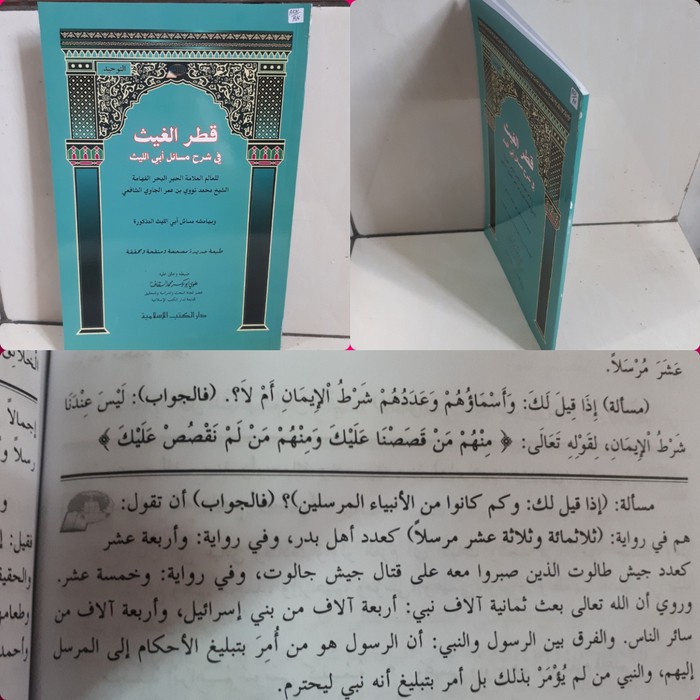 التوحيد
قطر الغيث
في شرح مسائل أبي الليث
للعالم العلامة الحبر البحر الفهامة
الشيخ محمد نووي بن عمر الجاوي الشافعي
وبهامشه مسائل أبي الليث المذكورة
طبعة جديدة مصححة ومنقحة ومحققة
دار الكتب الإسلامية
قطر الغيث
في شرح مسائل أبي الليث
عَشَرَ مُرْسَلاً.
(مسألة) إِذَا قِيلَ لَكَ: وَأَسْمَاؤُهُمْ وَعَدَدُهُمْ شَرْطُ الْإِيمَانِ أَمْ لَا؟. (فالجواب): لَيْسَ عِنْدَنَا
شَرْطُ الْإِيمَانِ، لِقَوْلِهِ تَعَالَى: ﴿ مِنْهُم مَّن قَصَصْنَا عَلَيْكَ وَمِنْهُم مَّن لَّمْ نَقْصُصْ عَلَيْكَ ﴾
مسألة: (إذا قيل لك: وكم كانوا من الأنبياء المرسلين)؟ (فالجواب) أن تقول:
هم في رواية: (ثلاثمائة وثلاثة عشر مرسلاً) كعدد أهل بدر، وفي رواية: وأربعة عشر
كعدد جيش طالوت الذين صبروا معه على قتال جيش جالوت، وفي رواية: وخمسة عشر.
وروي أن الله تعالى بعث ثمانية آلاف نبي: أربعة آلاف من بني إسرائيل، وأربعة آلاف من
سائر الناس. والفرق بين الرسول والنبي: أن الرسول هو من أُمِرَ بتبليغ الأحكام إلى المرسل
إليهم، والنبي من لم يُؤْمَرْ بذلك بل أمر بتبليغ أنه نبي ليحترم.
إجمالاً
فقيل:
والحقيق
وطعامه
وأحمد